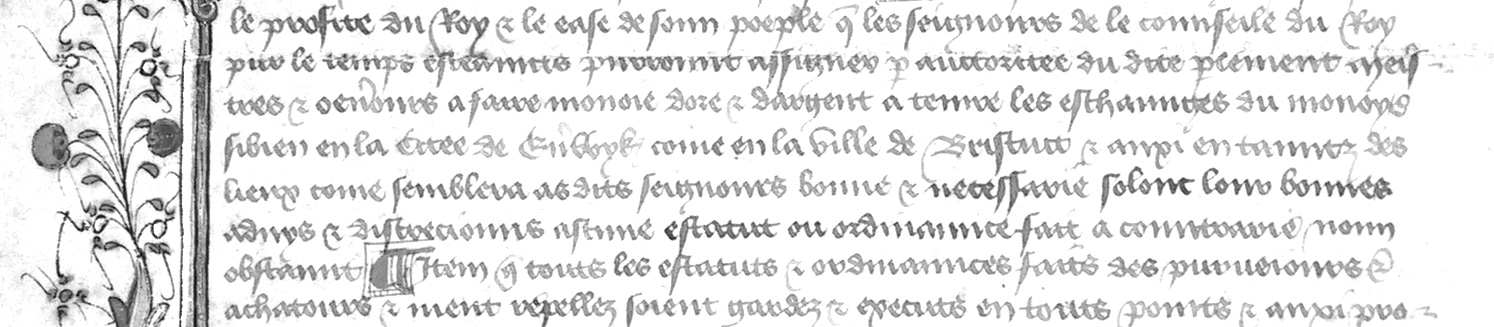 le profite du Roy & le ease de soun poeple q̄ les seignours de le counseile du Roy
pur le temps esteauntz purrount assigner p auctoritee du dite plement meis
tres & oeu̓ours a faire monoie dore & dargent a tenire les eschaunges du monoys
sibien en la Citee de Eu̓wyk come en la ville de Bristutt & auxi en tauntz des
lieux come semblera as dits seignours bonne & necessarie solont lour bonnes
aduys & discrecionns ascune estatut ou ordinaunce fait a countrarie noun
obstaunt Item q̄ touts les estatuts & ordinaunces faits des purueiours &
achatours & nient repellez soient gardez & executs en touts pointz & auxi pro